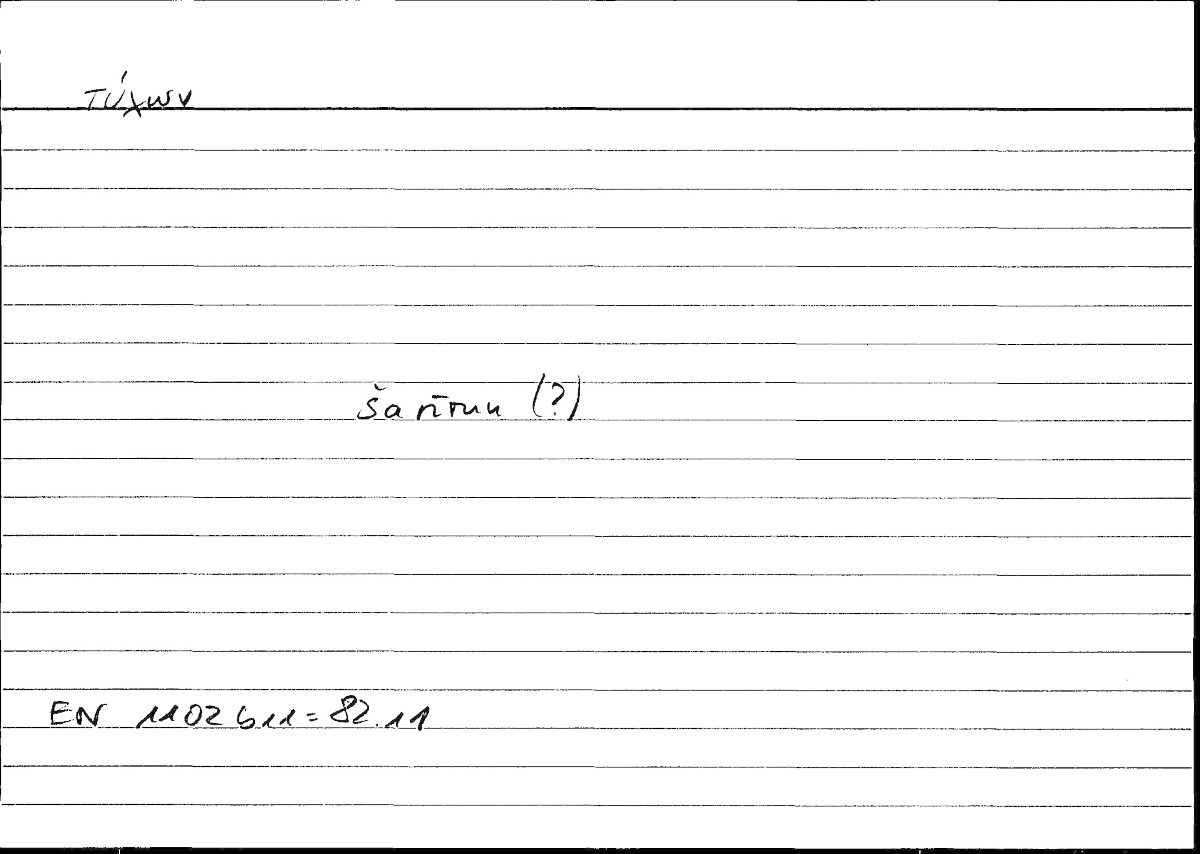 τύχων
šarīrun (?)
EN 1102 b 11 = 82.11